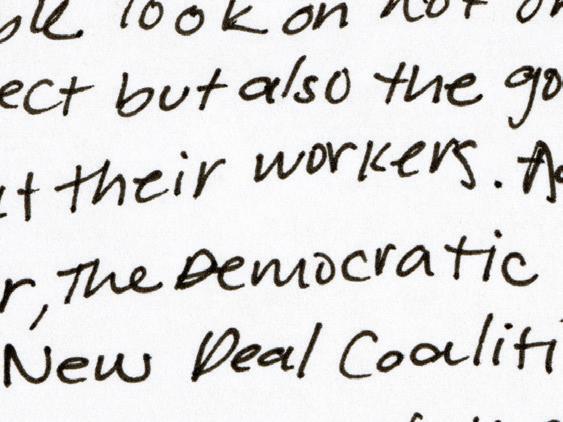 look on not
ect but also the go
ut their workers.
r, The Democratic
New Deal Coaliti